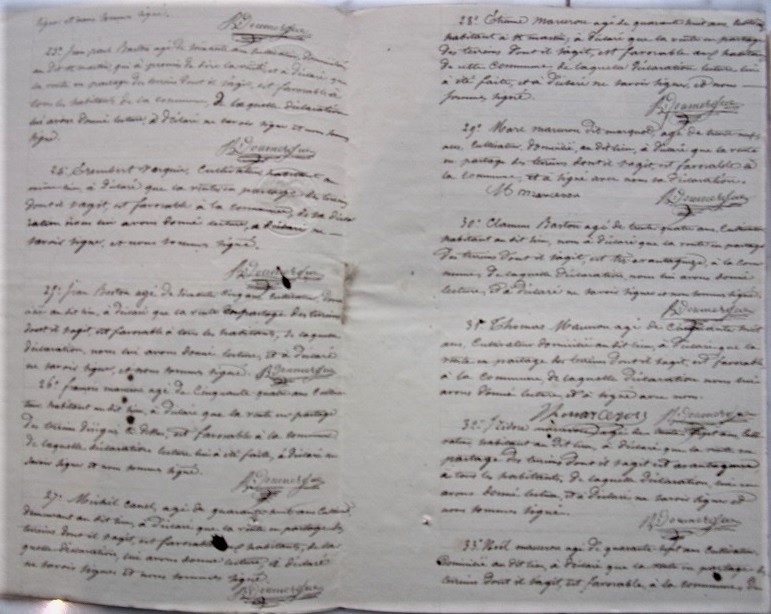 signer et nous sommes signé.
R. Doumergue
23° Jean paul Barton agé de ans cultivateur, domicilié
au dit St martin, qui à promis de dire la vérité et à déclaré que
la vente en partage des terrains dont il s'agit, est favorable à
tous les habitants de la commune, de laquelle déclaration
lui avons donné lecture, à déclaré ne savoir signer et nous sommes
signé.
R. Doumergue
24° Trembert cultivateur habitant au
même lieu, à déclaré que la vente en partage des terrains
dont il s'agit, est favorable à la commune, de sa décla
ration nous lui avons donné lecture, à déclaré ne
savoir signer, et nous sommes signé.
R. Doumergue
25° Jean Barton agé de trente ans, cultivateur, domi
cilié au dit lieu, à déclaré que la vente en partage des terrains
dont il s'agit, est favorable à tous les habitants, de laquelle
déclaration, nous lui avons donné lecture, et à déclaré
ne savoir signer, et nous sommes signé. R. Doumergue
26° françois agé de Cinquante quatre ans Cultiva
teur habitant au dit lieu, à déclaré que la vente en partage
des terrains, est favorable à la commune
de laquelle déclaration lecture lui à été faite, à déclaré ne
savoir signer et nous sommes signé.
R. Doumergue
27° Michel agé de quarante huit ans Cultivateur
demeurant au dit lieu, à déclaré que la vente en partage des
terrains dont il s'agit, est favorable aux habitants, de la
quelle déclaration, lui avons donné lecture, et déclaré
ne savoir signer et nous sommes signé.
R. Doumergue
28° Etienne mauron agé de quarante huit ans cultiva
habitant à St martin, à déclaré que la vente en partage
des terrains dont il s'agit, est favorable aux habitants
de cette Commune, de laquelle déclaration lecture lui
à été faite, et à déclaré ne savoir signer, et nous
sommes signé.
R. Doumergue
29° Marc mauron dit marquet, agé de trente
ans, Cultivateur, domicilié, au dit lieu, à déclaré que la vente
en partage des terrains dont il s'agit, est favorable à
la commune, et à signé avec nous sa déclaration.
M mauron R. Doumergue
30° Clamens Barton agé de trente quatre ans, Cultivateur
habitant au dit lieu, nous à déclaré que la vente en partage
des terrains dont il s'agit, est très avantageuse, à la com
mune, de laquelle déclaration, nous lui avons donné
lecture, et à déclaré ne savoir signer et nous sommes signé.
R. Doumergue
31° Thomas Mauron agé de Cinquante huit
ans, Cultivateur domicilié au dit lieu, à déclaré que la
vente en partage des terrains dont il s'agit, est favorable
à la Commune, de laquelle déclaration nous lui
avons donné lecture et à signé avec nous.
R. Doumergue
32° Izidore mauron, agé de trente sept ans, Culti
vateur, habitant au dit lieu, à déclaré que la vente en
partage des terrains dont il s'agit est avantageuse
à tous les habitants, de laquelle déclaration, lui en
avons donné lecture, et à déclaré ne savoir signer et
nous sommes signé.
R. Doumergue
33° Noël mauron agé de quarante sept ans Cultivateur
Domicilié au dit lieu, à déclaré que la vente en partage des
terrains dont il s'agit, est favorable, à la commune, de